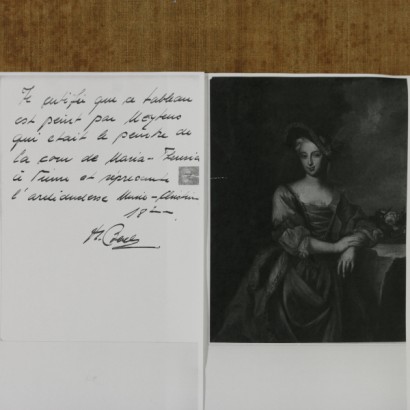 Je certifie que ce tableau
est peint par Meytens
qui etait le peintre de
la cour de Maria-Theresia
à Vienne et represente
l'archiduchesse Marie-Christine
18ème